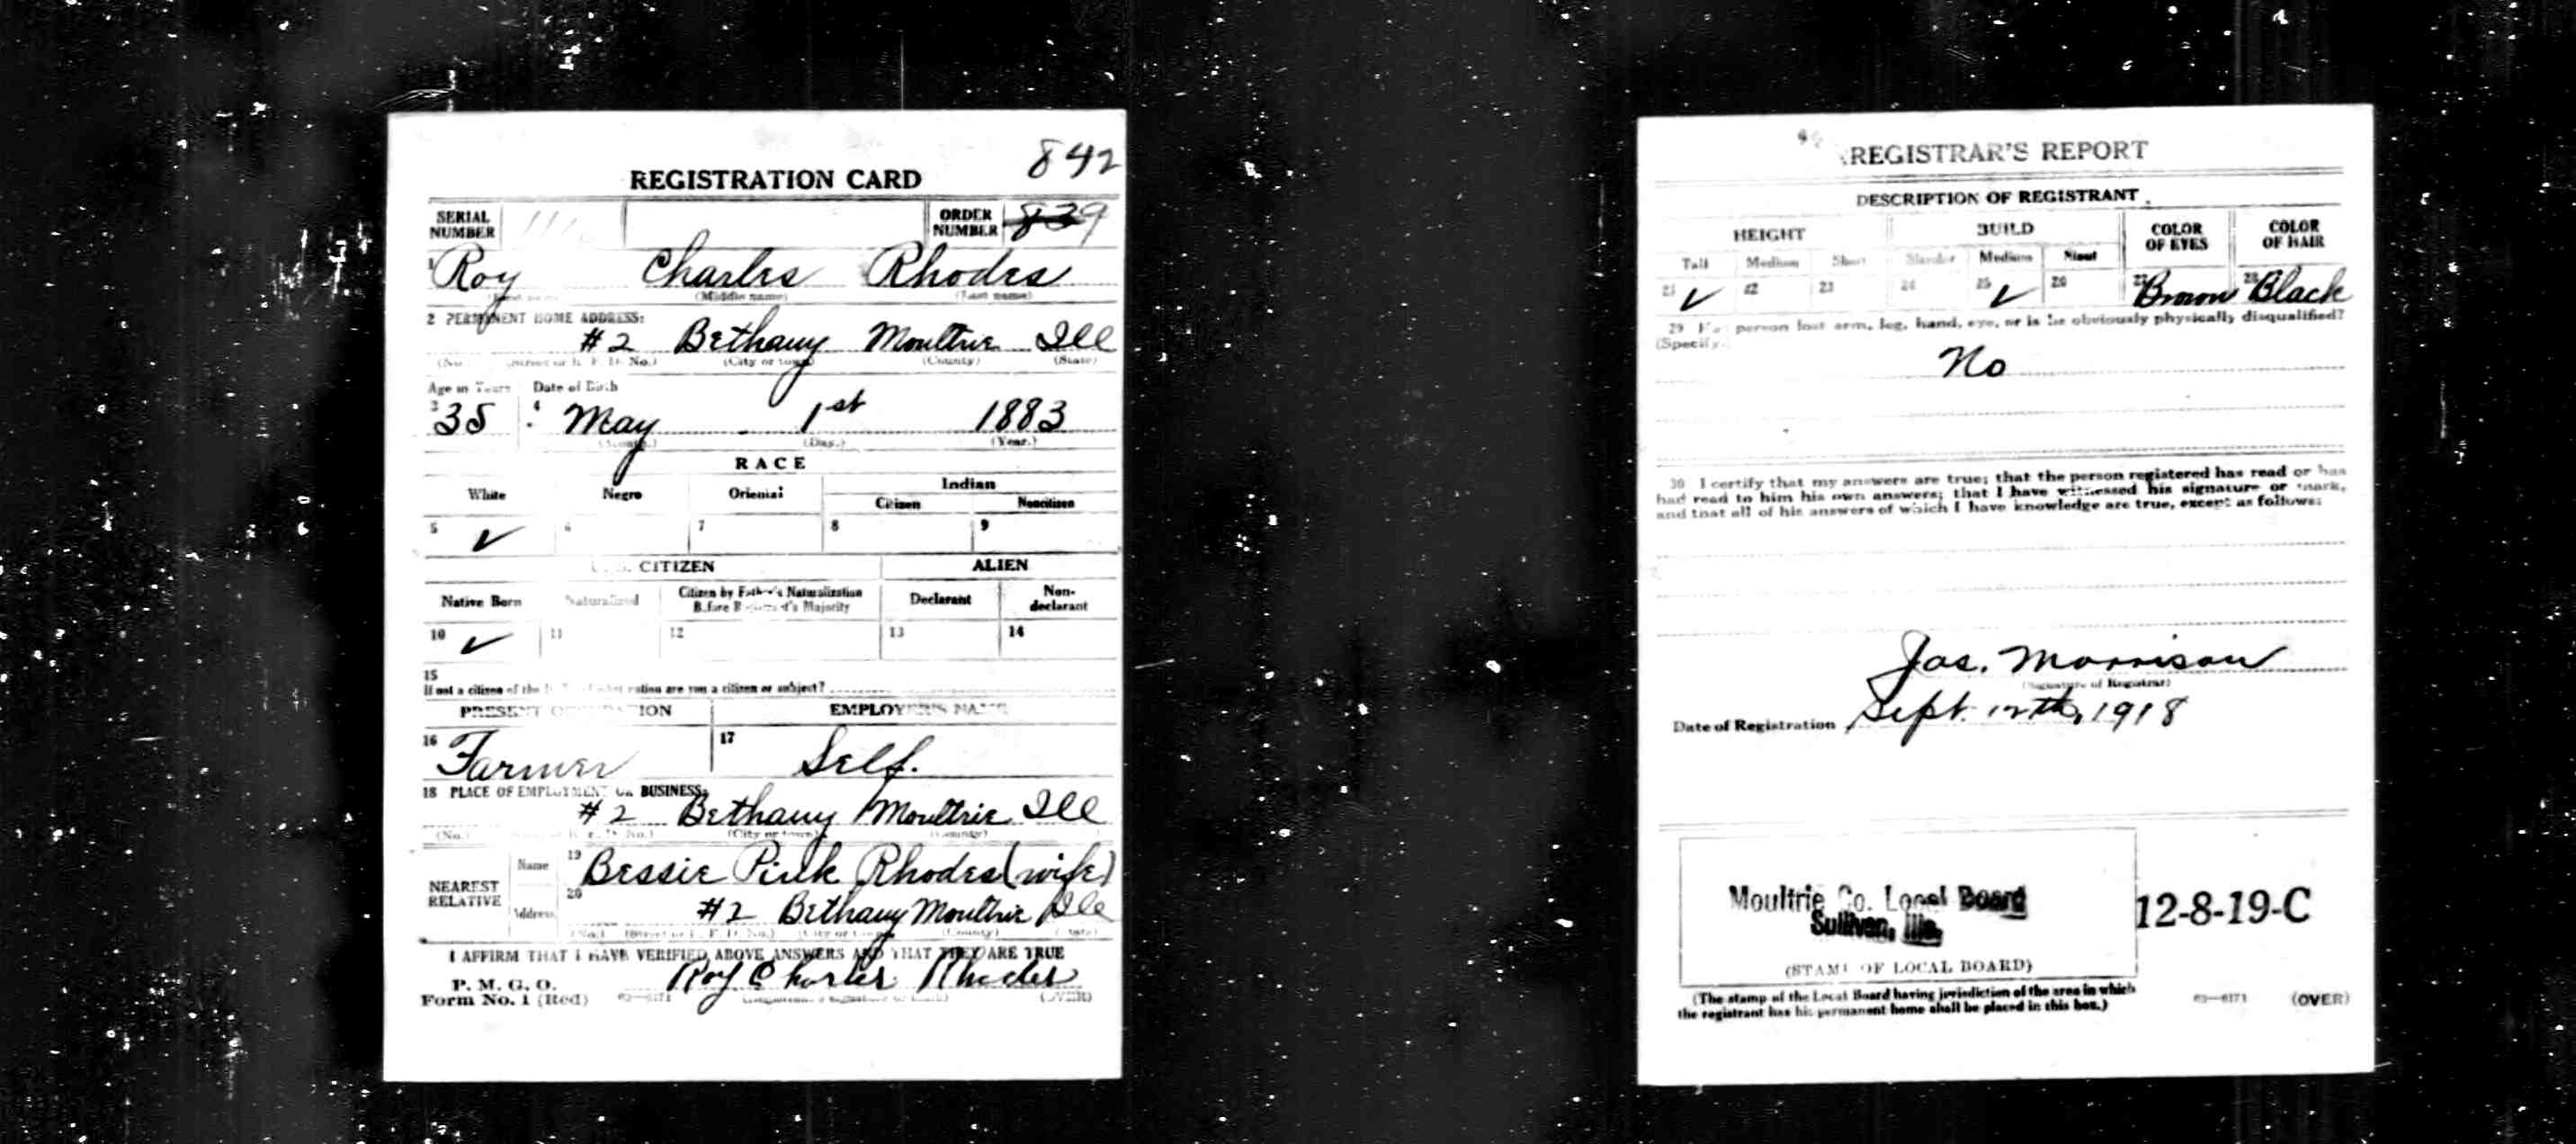 842
REGISTRATION CARD
SERIAL NUMBER ORDER NUMBER 839
1 Roy Charles Rhodes
(Middle name) (Last name)
2 PERMANENT HOME ADDRESS:
#2 Bethany Moultrie Ill
(No.) (Street or R. F. D. No.) (City or town) (County) (State)
Age in Years Date of Birth
3 35 4 May 1st 1883
(Month.) (Day.) (Year.)
RACE
White Negro Oriental Indian
Citizen Noncitizen
5 ✓ 6 7 8 9
U. S. CITIZEN ALIEN
Native Born Naturalized Citizen by Father's Naturalization Before Registrant's Majority Declarant Non-declarant
10 ✓ 11 12 13 14
15
If not a citizen of the U. S., of what nation are you a citizen or subject?
PRESENT OCCUPATION EMPLOYER'S NAME
16 Farmer 17 Self.
18 PLACE OF EMPLOYMENT OR BUSINESS:
#2 Bethany Moultrie Ill
(No.) (City or town) (County)
NEAREST RELATIVE Name 19 Bessie Pink Rhodes (wife)
Address 20 #2 Bethany Moultrie Ill
(No.) (Street or R. F. D. No.) (City or town) (County) (State)
I AFFIRM THAT I HAVE VERIFIED ABOVE ANSWERS AND THAT THEY ARE TRUE
P. M. G. O.
Form No. 1 (Red) Roy Charles Rhodes
(OVER)
REGISTRAR'S REPORT
DESCRIPTION OF REGISTRANT
HEIGHT BUILD COLOR OF EYES COLOR OF HAIR
Tall Medium Short Slender Medium Stout
21 ✓ 22 23 24 25 ✓ 26 27 Brown 28 Black
29 Has person lost arm, leg, hand, eye, or is he obviously physically disqualified?
(Specify.)
No
30 I certify that my answers are true; that the person registered has read or has
had read to him his own answers; that I have witnessed his signature or mark,
and that all of his answers of which I have knowledge are true, except as follows:
Jas. Morrison
(Signature of Registrar)
Date of Registration Sept. 12th, 1918
Moultrie Co. Local Board
Sullivan, Ills.
12-8-19-C
(STAMP OF LOCAL BOARD)
(The stamp of the Local Board having jurisdiction of the area in which
the registrant has his permanent home shall be placed in this box.)
63—6171 (OVER)